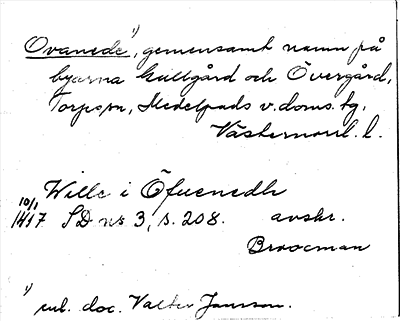 Ovanede¹⁾, gemensamt namn på
byarna Gullgård och Övergård,
Torps sn, Medelpads v. doms. tg.
Västernorrl. l.
Wille i Öfuenedh
10/1 1417 SD ns 3, s. 208. avskr.
Broocman
¹⁾ enl. doc. Valter Jansson.